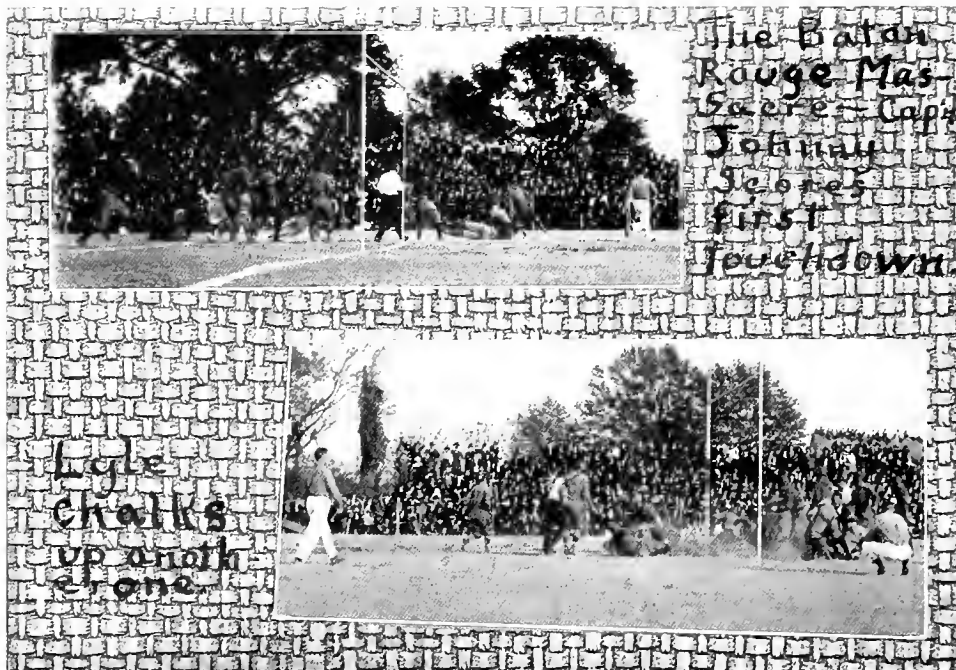 The Batan
Rouge Mas-
Sacre - Cap't
Johnny
Scores
first
Touchdown.
Lyle
chalks
up anoth
er one